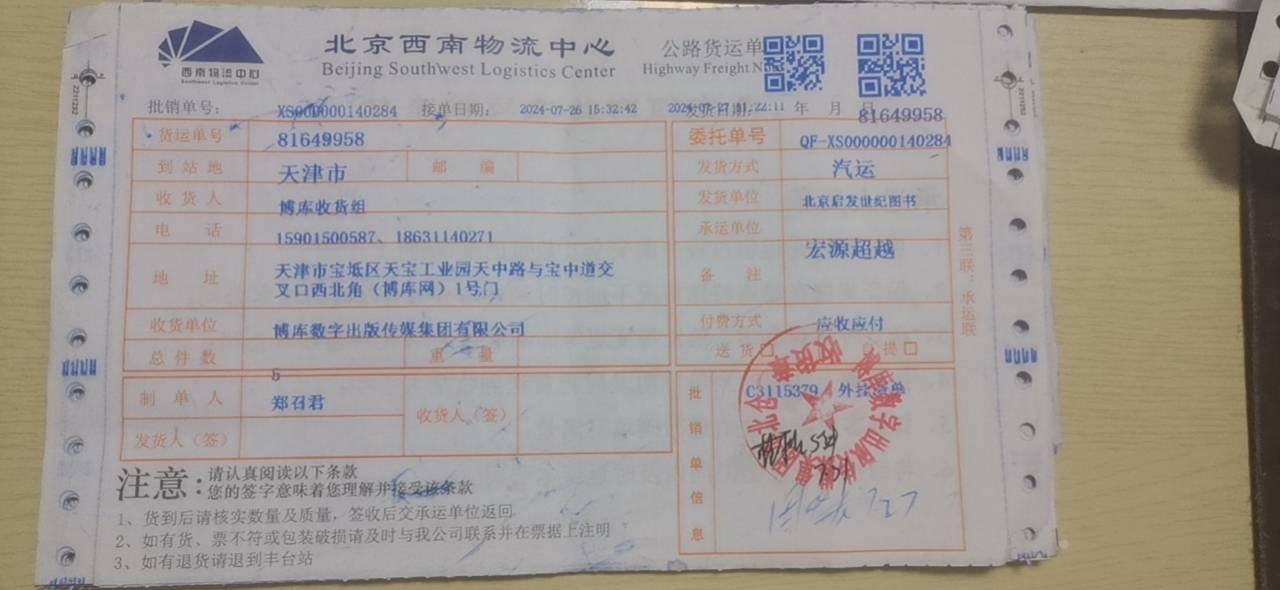 西南物流中心
Southwest Logistics Center
北京西南物流中心
Beijing Southwest Logistics Center
公路货运单
Highway Freight
批销单号： XS000000140284 接单日期： 2024-07-26 15:32:42 发货日期： 2024-07-27 11:22:11 年 月 日
81649958
货运单号 81649958 委托单号 QF-XS000000140284
到站地 天津市 邮编 发货方式 汽运
收货人 博库收货组 发货单位 北京启发世纪图书
电话 15901500587、18631140271 承运单位
宏源超越
地址 天津市宝坻区天宝工业园天中路与宝中道交 备注
叉口西北角（博库网）1号门
收货单位 博库数字出版传媒集团有限公司 付费方式 应收应付
总件数 5 重量 送货□ 自提□
制单人 郑召君 收货人（签） 批销单信息 C3115379
发货人（签）
收货专用章
第三联：承运联
注意：请认真阅读以下条款
您的签字意味着您理解并接受该条款
1、货到后请核实数量及质量，签收后交承运单位返回
2、如有货、票不符或包装破损请及时与我公司联系并在票据上注明
3、如有退货请退到丰台站